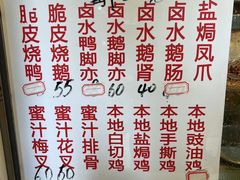 脆皮烧鸭
脆皮烧鹅
卤水鸭脚
卤水鹅脚亦
卤水鹅肾
卤水鹅肠
盐焗凤爪
55
60
40
蜜汁梅叉
蜜汁花叉
蜜汁排骨
本地白切鸡
本地盐焗鸡
本地手撕鸡
本地豉油鸡
60
50